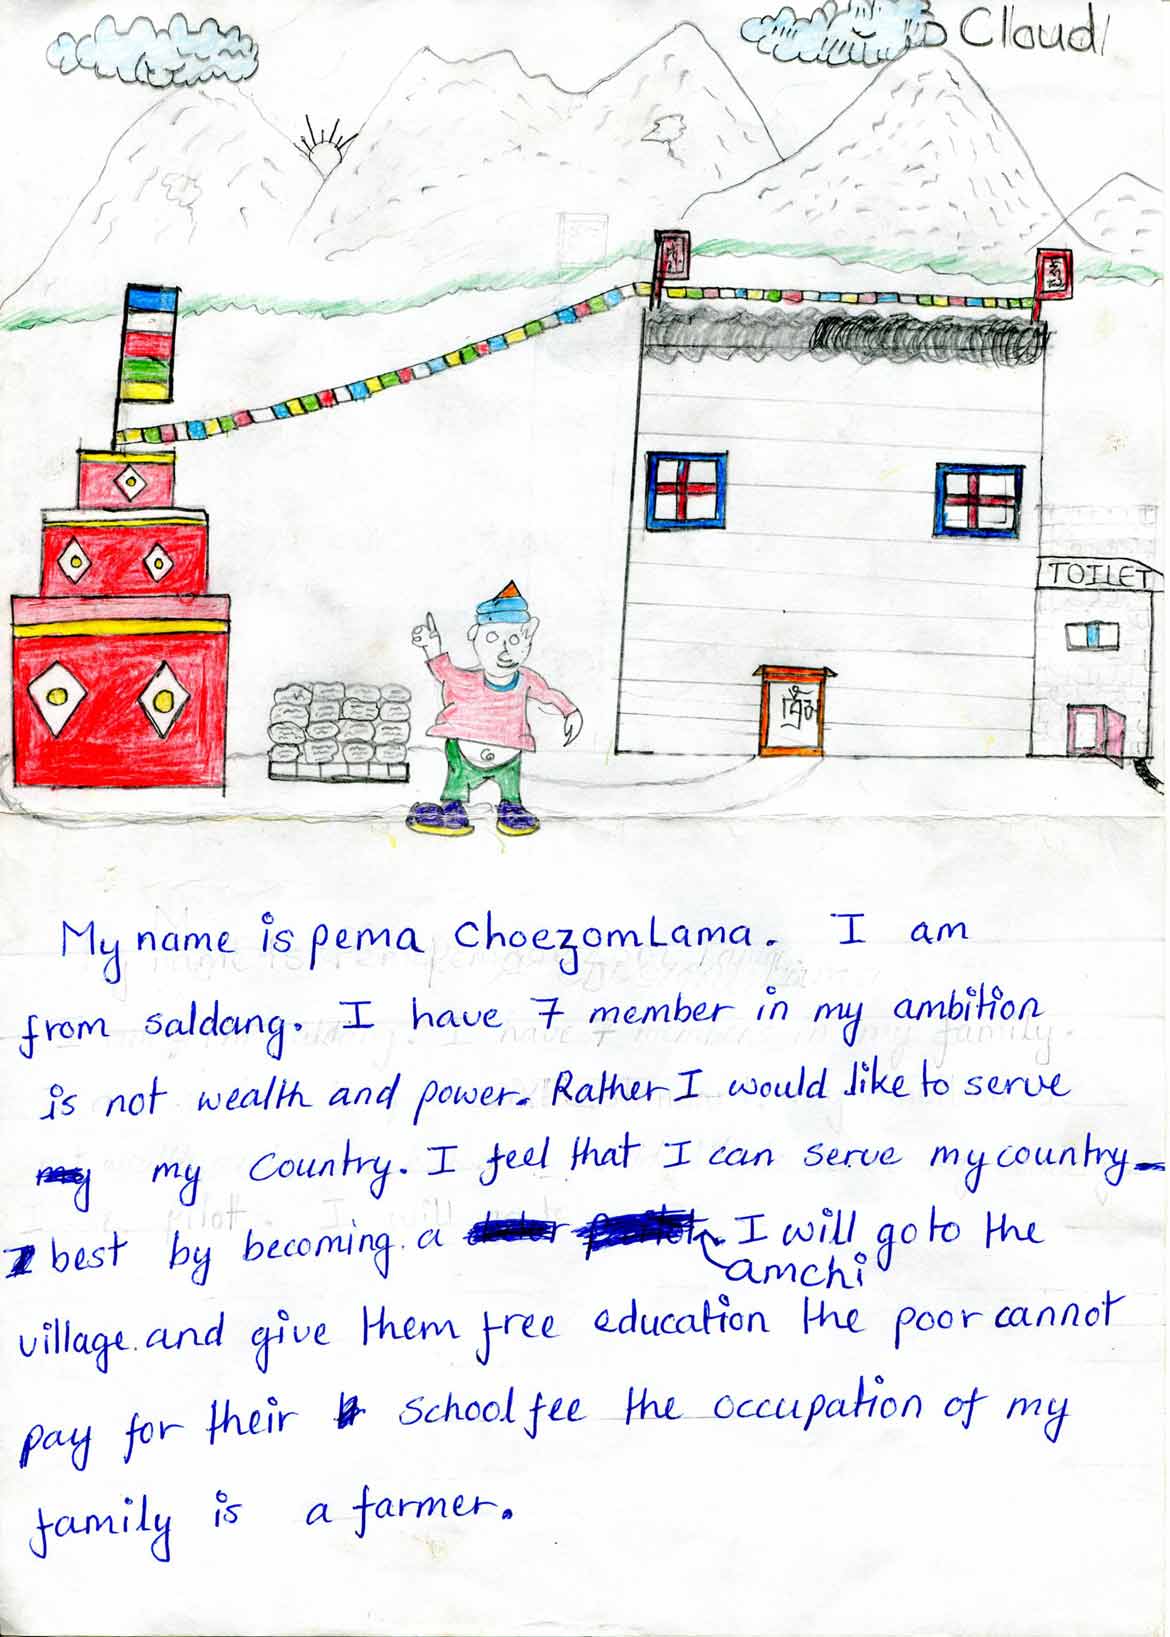 Clloud
TOILET
My name is pema Choezom Lama. I am
from saldang. I have 7 member in my ambition
is not wealth and power. Rather I would like to serve
my country. I feel that I can serve my country
best by becoming a amchi. I will go to the
village. and give them free education the poor cannot
pay for their school fee the occupation of my
family is a farmer.